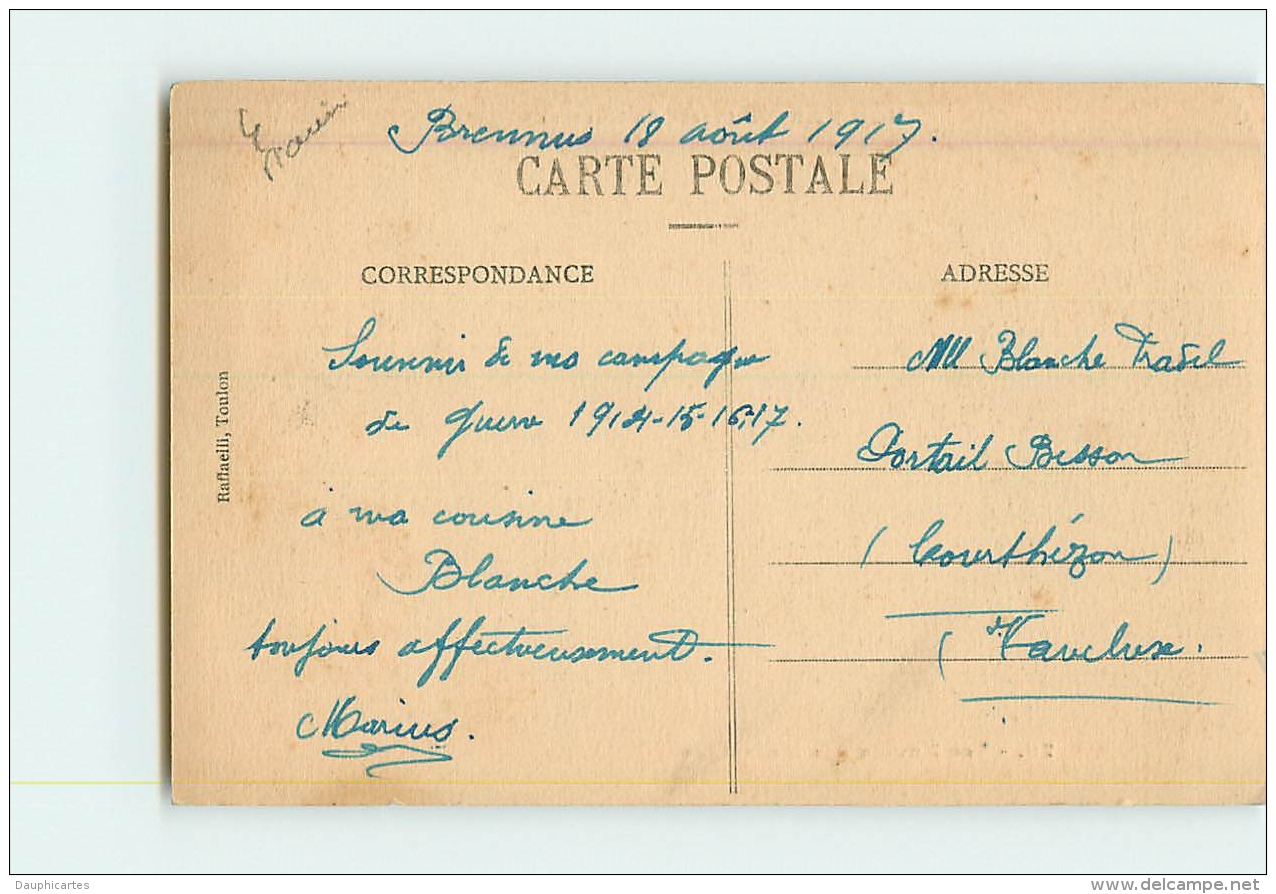 Brennus 18 août 1917.
CARTE POSTALE
CORRESPONDANCE
Souvenir de ma campagne
de guerre 1914-15-16-17.
à ma cousine
Blanche
toujours affectueusement.
Marius.
ADRESSE
Mlle Blanche
Portail Besson
(Courthézon)
(Vaucluse.
Raffaelli, Toulon
Dauphicartes
delcampe.net